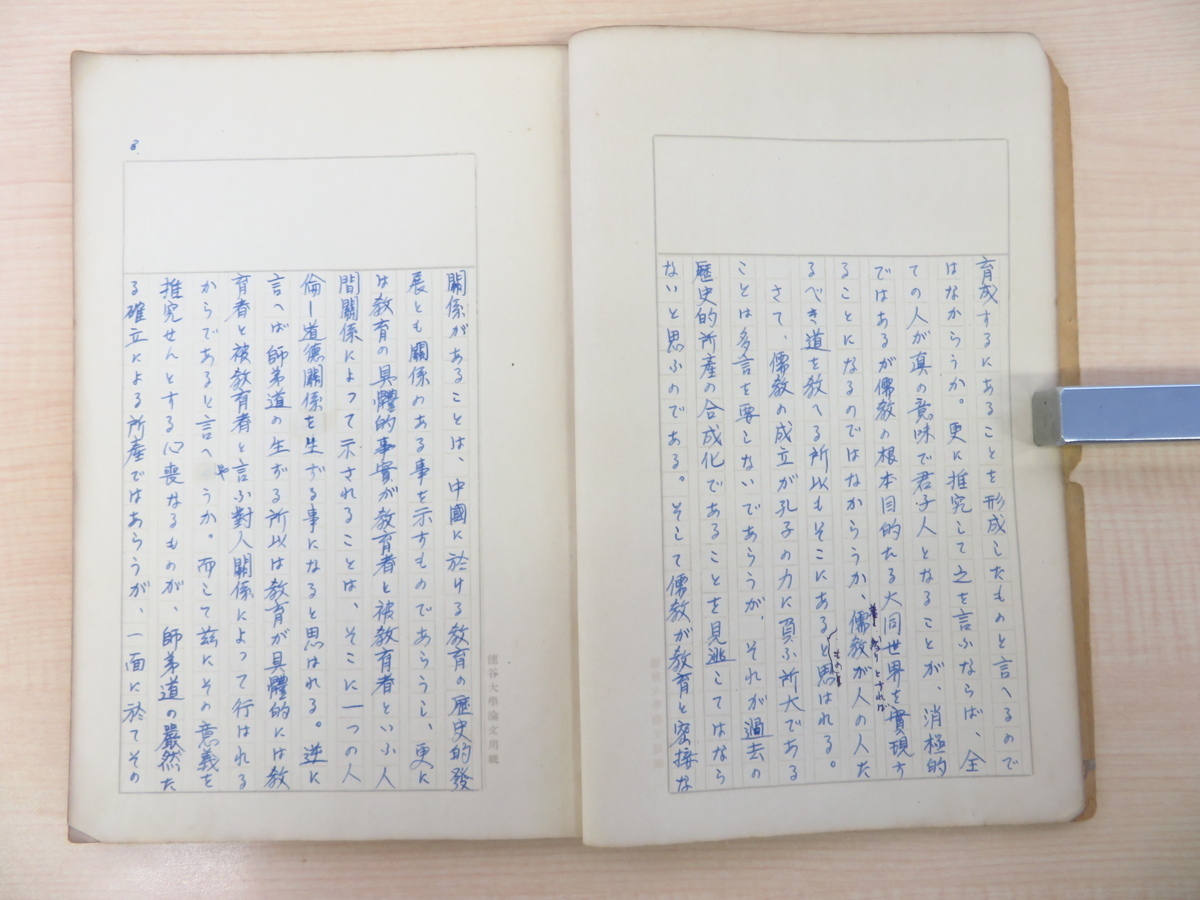 育成するにあることを形成したものと言へるので
はなからうか。更に推究して之を言ふならば、全
ての人が真の意味で君子人となることが、消極的
ではあるが儒教の根本目的たる大同世界を實現す
ることになるのではなからうか、儒教が人の人た
なりとすれば
るべき道を教へる所以もそこにあると思はれる。
もの
さて、儒教の成立が孔子の力に負ふ所大である
ことは多言を要しないであらうが、それが過去の
歴史的所産の合成化であることを見逃してはなら
ないと思ふのである。そして儒教が教育と密接な
關係があることは、中國に於ける教育の歴史的發
展とも關係のある事を示すものであらうし、更に
は教育の具體的事實が教育者と被教育者といふ人
間關係によつて示されることは、そこに一つの人
倫ー道德關係を生ずる事になると思はれる。逆に
言へば師弟道の生ずる所以は教育が具體的には教
育者と被教育者と言ふ對人關係によつて行はれる
からであると言へやうか。而して茲にその意義を
推究せんとする心喪なるものが、師弟道の嚴然た
る確立による所産ではあらうが、一面に於てその
8
龍谷大學論文用紙